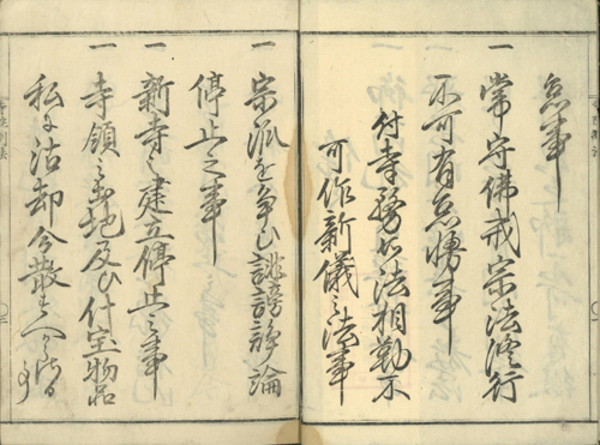 怠事
一 常守佛戒宗法澄行
不可有怠惰事
付寺務如法相勤不
可作新儀之法事
一 宗派を争ひ誹謗諍論
停止之事
一 新寺之建立停止之事
一 寺領之田地及ひ什宝物品
私に沽却令散